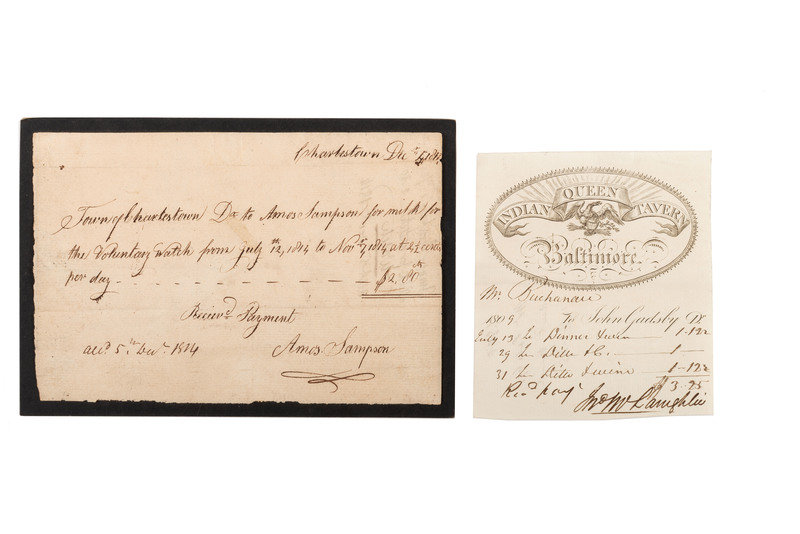 Charlestown Dec. 5th 1814
Town of Charlestown Dr to Amos Sampson for milk for
the Voluntary watch from July 12th, 1814 to Nov. 1814 at 2½ cents
per day - - - - - - - - $2.80 cts
Receiv'd Payment
5th Decr. 1814 Amos Sampson
INDIAN QUEEN TAVERN
Baltimore.
Mr. Buchanan
1809 To John Gadsby Dr
July To Dinner 1-12½
29 To Ditto &c. 1 -
31 To Ditto 1-12½
$3.25
Recd Jno McLaughlin